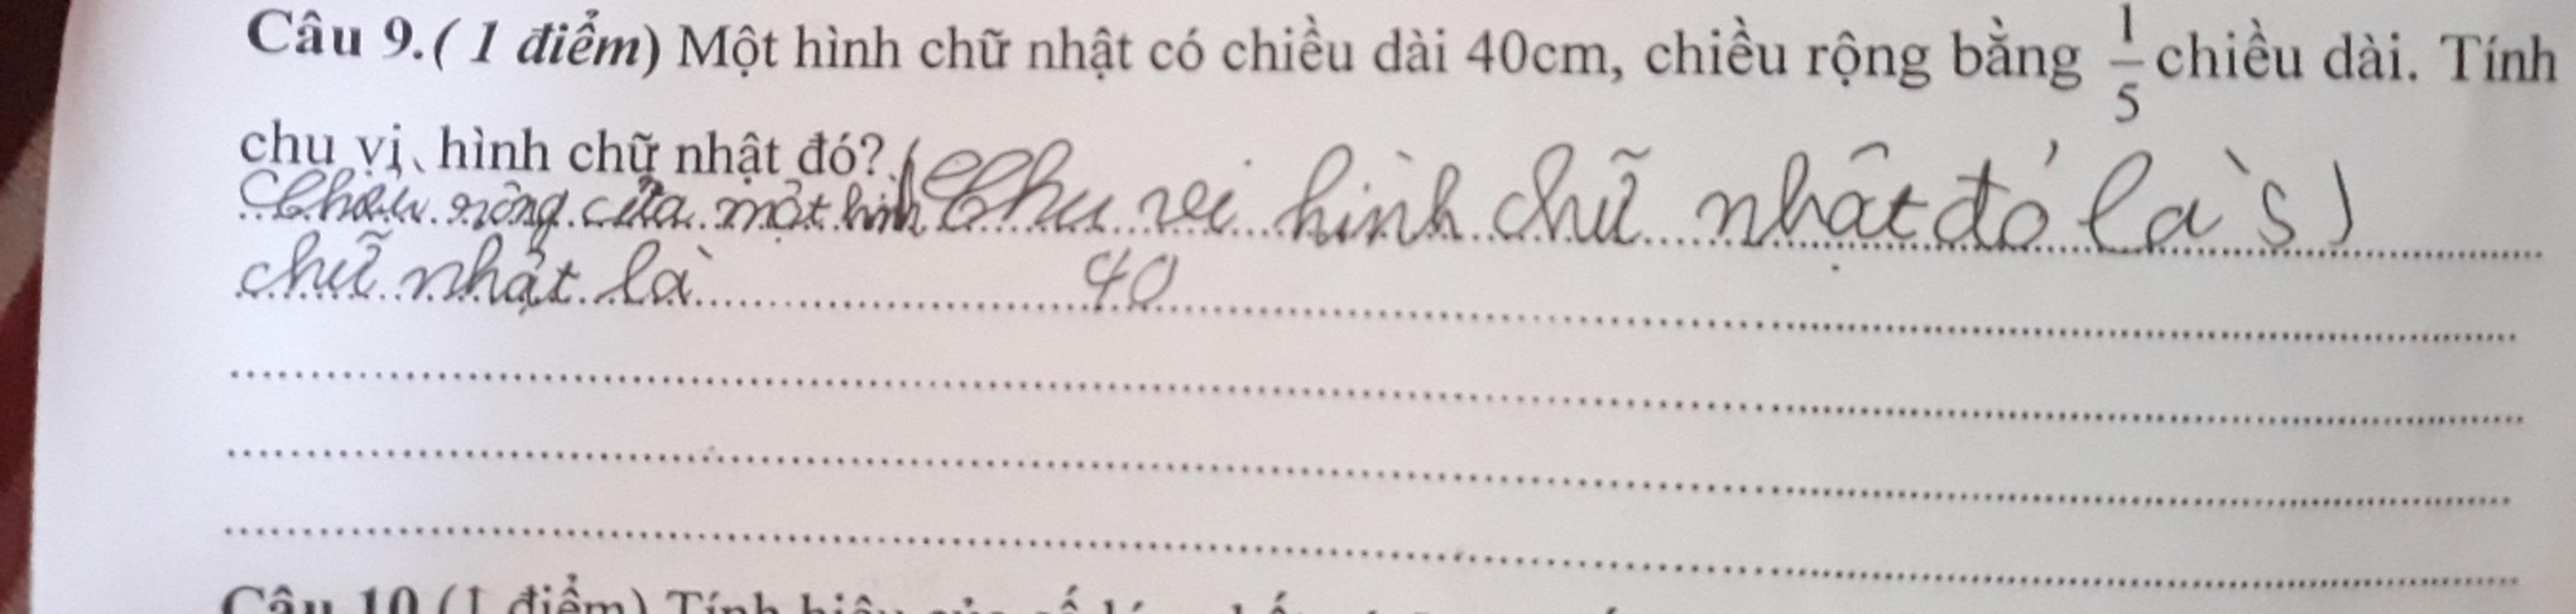 Câu 9.( 1 điểm) Một hình chữ nhật có chiều dài 40cm, chiều rộng bằng 1/5 chiều dài. Tính
chu vi hình chữ nhật đó?
rông của một hình (Chu vi hình chữ nhật đó là s)
chữ nhật là 40
Câu 10 (1 điểm) Tính hiệu của số